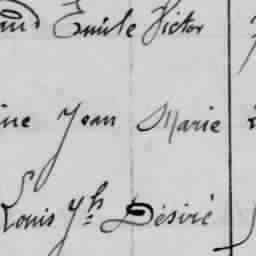 Emile Victor
Jean Marie
Louis Jh Désiré